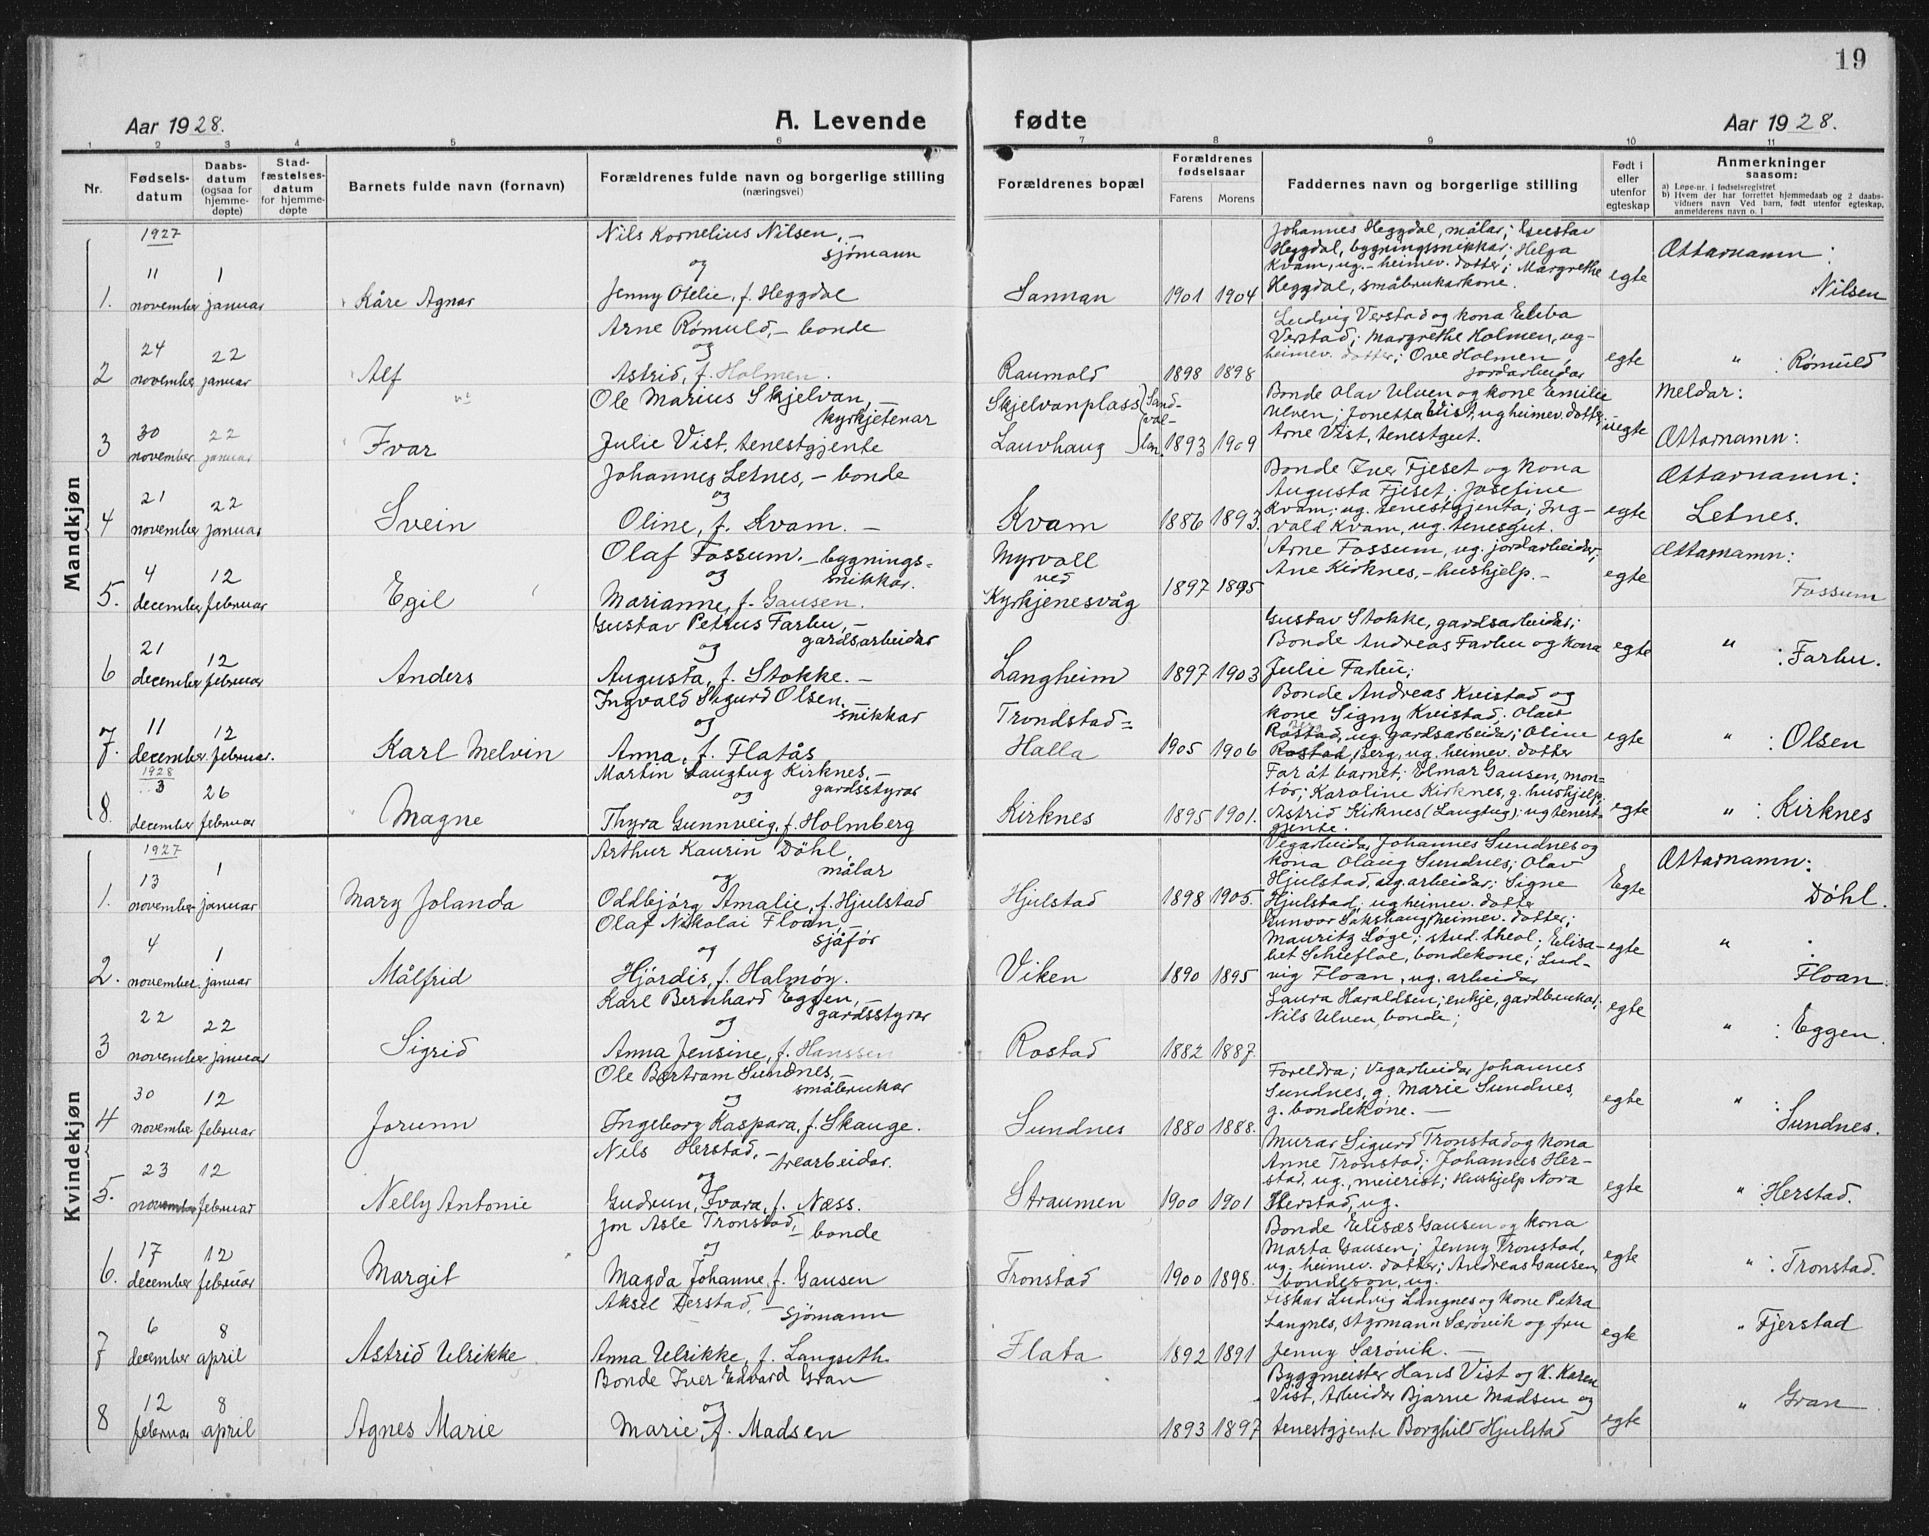 19
Aar 1928.
A. Levende fødte
Aar 1928.
1 2 3 4 5 6 7 8 9 10 11
Nr.
Fødsels-
datum
Daabs-
datum
(ogsaa for
hjemme-
døpte)
Stad-
fæstelses-
datum
for hjemme-
døpte
Barnets fulde navn (fornavn)
Forældrenes fulde navn og borgerlige stilling
(næringsvei)
Forældrenes bopæl
Forældrenes
fødselsaar
Farens Morens
Faddernes navn og borgerlige stilling
Født i
eller
utenfor
egteskap
Anmerkninger
saasom:
a) Løpe-nr. i fødselsregistret
b) Hvem der har forrettet hjemmedaab og 2 daabs-
vidners navn Ved barn, født utenfor egteskap,
anmelderens navn o. l
Mandkjøn
1927
1. 11 november 1 januar
Kåre Agnar
Nils Kornelius Nilsen, –
sjømann
og
Jenny Otelie, f. Heggdal
Sannan
1901 1904
Johannes Heggdal, målar; Gustav
Heggdal, bygningssnikkar; Helga
Kvam, ug. – heimev. dotter; Margrethe
Heggdal, småbrukarkone.
egte
Ættarnamn:
Nilsen
2 24 november 22 januar
Alf
Arne Rømuld, – bonde
og
Astrid, f. Holmen.
Raumold
1898 1898
Ludvig Verstad og kona
Verstad; Margrethe Holmen, ug-
heimev. dotter; Ove Holmen,
jordarbeidar
egte
" : Rømuld
3 30 november 22 januar
Ivar
Ole Marius Skjelvan, –
kyrkjetenar
Julie Vist, tenestgjente
Skjelvanplass
Lauvhaug
Sand-
vol-
lan.
1893 1909
Bonde Olav Ulven og kone Emilie
Ulven; Jonetta Vist, ug heimev. dotter
Arne Vist, tenestgut.
uegte
Meldar:
Ættarnamn:
4 21 november 22 januar
Svein
Johannes Letnes, – bonde
og
Oline, f. Kvam. –
Kvam
1886 1893.
Bonde Iver Fjeset og kona
Augusta Fjeset; Josefine
Kvam; ug. tenestgjenta; Ing-
vald Kvam, ug. tenesgut.
egte
Ættarnamn:
Letnes.
5. 4 december 12 februar
Egil
Olaf Fossum. – bygnings-
snikkar.
og
Marianne, f. Gausen.
Myrvoll
ved
Kyrkjenesvåg
1897 1895
Arne Fossum, ug. jordarbeider;
Ane Kirknes, – hushjelp. –
egte
Ættarnamn:
Fossum
6 21 december 12 februar
Anders
Gustav Petrus Farbu, –
gardsarbeidar
og
Augusta, f. Stokke. –
Langheim
1897 1903
Gustav Stokke, gardsarbeidar;
Bonde Andreas Farbu og kona
Julie Farbu;
egte
" : Farbu.
7. 11 december 12 februar.
Karl Melvin
Ingvald Sigurd Olsen,
snikkar
og
Anna, f. Flatås
Trondstad=
Halla
1905 1906
Bonde Andreas Kvistad og
kone Signy Kvistad; Olav
Rostad, ug. gardsarbeidar; Oline
Rostad Berg, ug. heimev. dotter
egte
" : Olsen
8. 1928 3 december 26 februar
Magne
Martin Laugtug Kirknes, –
gardsstyrar
og
Thyra Gunnveig, f. Holmberg
Kirknes
1895 1901.
Far åt barnet; Elmar Gausen, mon-
tør; Karoline Kirknes, g. hushjelp;
Astrid Kirknes (Laugtug); ug tenest-
gjente.
egte
" : Kirknes
Kvindekjøn
1927
1. 13 november 1 januar
Mary Jolanda
Arthur Kaurin Döhl,
målar
og
Oddbjørg Amalie, f. Hjulstad
Hjulstad
1898 1905.
Vegarbeidar Johannes Sundnes og
kona Olaug Sundnes; Olav
Hjulstad, ug. arbeidar; Signe
Hjulstad; ug heimev. dotter
Egte
Ættarnamn:
Döhl.
2. 4 november 1 januar
Målfrid
Olaf Nikolai Floan, –
sjåfør
og
Hjørdis, f. Halmøy.
Viken
1890 1895
Gunvor Sakshaug heimev. dotter;
Mauritz Løge; stud. theol; Elisa-
bet Schiefloe, bondekone; Lud-
vig Floan, ug. arbeidar
egte
" :
Floan.
3 22 november 22 januar
Sigrid
Karl Bernhard Eggen, –
gardsstyrar
og
Anna Jensine, f. Hanssen
Rostad
1882 1887.
Laura Haraldsen; enkje, gardbrukar;
Nils Ulven, bonde;
egte
" : Eggen.
4 30 november 12 februar
Jorunn
Ole Bertram Sundnes, –
småbrukar
og
Ingeborg Kaspara, f. Skauge.
Sundnes
1880 1888.
Foreldra; Vegarbeidar Johannes
Sundnes, g. Marie Sundnes,
g. bondekone. –
egte
" :
Sundnes.
5. 23 november 12 februar
Nelly Antonie
Nils Herstad, –
trearbeidar.
og
Gudrun, Ivara, f. Næss.
Straumen
1900 1901
Murar Sigurd Tronstad og kona
Anne Tronstad; Johannes Her-
stad, ug., meierist; Hushjelp Nora
Herstad, ug.
egte
" : Herstad.
6. 17 december 12 februar
Margit
Jon Asle Tronstad, –
bonde
og
Magda Johanne, f. Gausen
Tronstad
1900 1898.
Bonde Elisæs Gausen og kona
Marta Gausen; Jenny Tronstad,
ug. heimev. dotter; Andreas Gausen,
bondeson, ug.
egte
" : Tronstad.
7 6 december 8 april
Astrid Ulrikke
Aksel Fjerstad, –
sjømann
Anna Ulrikke, f. Langseth
Flata
1892 1891
Fiskar Ludvig Langnes og kone Petra
Langnes, styrmann Særøvik og fru
Jenny Særøvik. –
egte
" Fjerstad
8 12 februar 8 april
Agnes Marie
Bonde Iver Edvard Gran
og
Marie, f. Madsen
1893 1897
Byggmeister Hans Vist og K. Karen
Vist, Arbeidar Bjarne Madsen og
tenestgjente Borghild Hjulstad
egte
" Gran